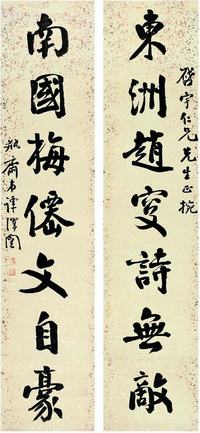 啓宇仁兄先生正捥
東洲趙叜詩無敵
南國梅僊文自豪
瓶齋弟譚澤闓